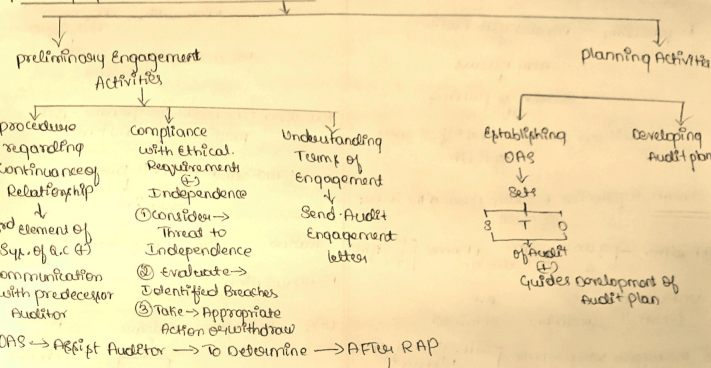 preliminary Engagement
Activities
planning Activitie
procedure
regarding
continuance of
Relationship
rd element of
Sys. of Q.C (+)
ommunication
with predecessor
Auditor
Compliance
with Ethical
Requirements
(+)
Independence
① Consider →
Threat to
Independence
② Evaluate →
Identified Breaches
③ Take → Appropriate
Action or withdraw
Understanding
Terms of
Engagement
Send Audit
Engagement
letter
Establishing
OAS
Sets
S T D
of Audit
(+)
Guides Development of
Audit plan
Developing
Audit plan
OAS → Assist Auditor → To Determine → AFTER RAP